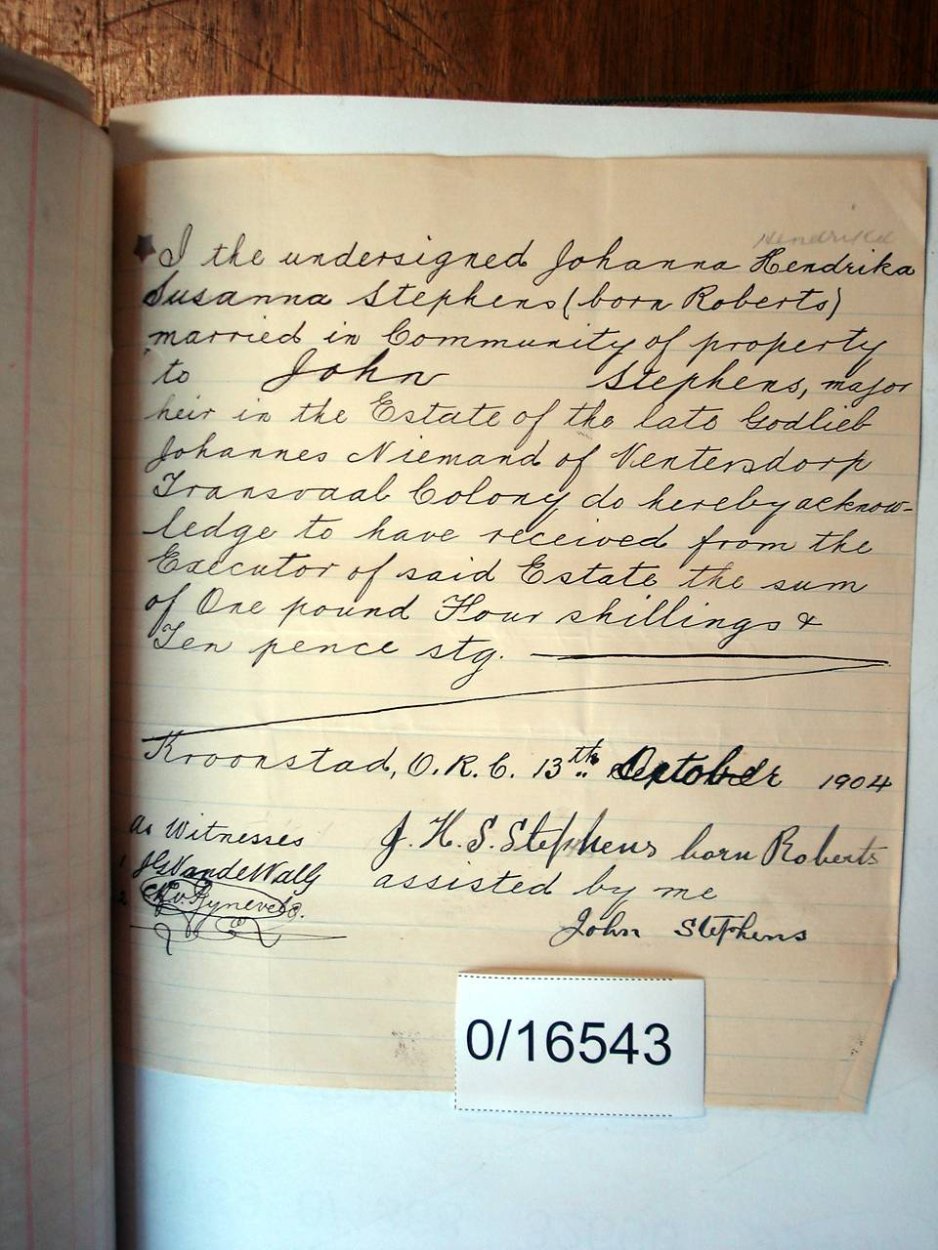 Hendrika
I the undersigned Johanna Hendrika
Susanna Stephens (born Roberts)
married in Community of property
to John Stephens, major
heir in the Estate of the late Godlieb
Johannes Niemand of Ventersdorp
Transvaal Colony do hereby acknow-
ledge to have received from the
Executor of said Estate the sum
of One pound Four shillings &
Ten pence stg.
Kroonstad, O.R.C. 13th October 1904
As Witnesses
J. H. S. Stephens born Roberts
1. JG Van de Wall
assisted by me
2.
John Stephens
0/16543